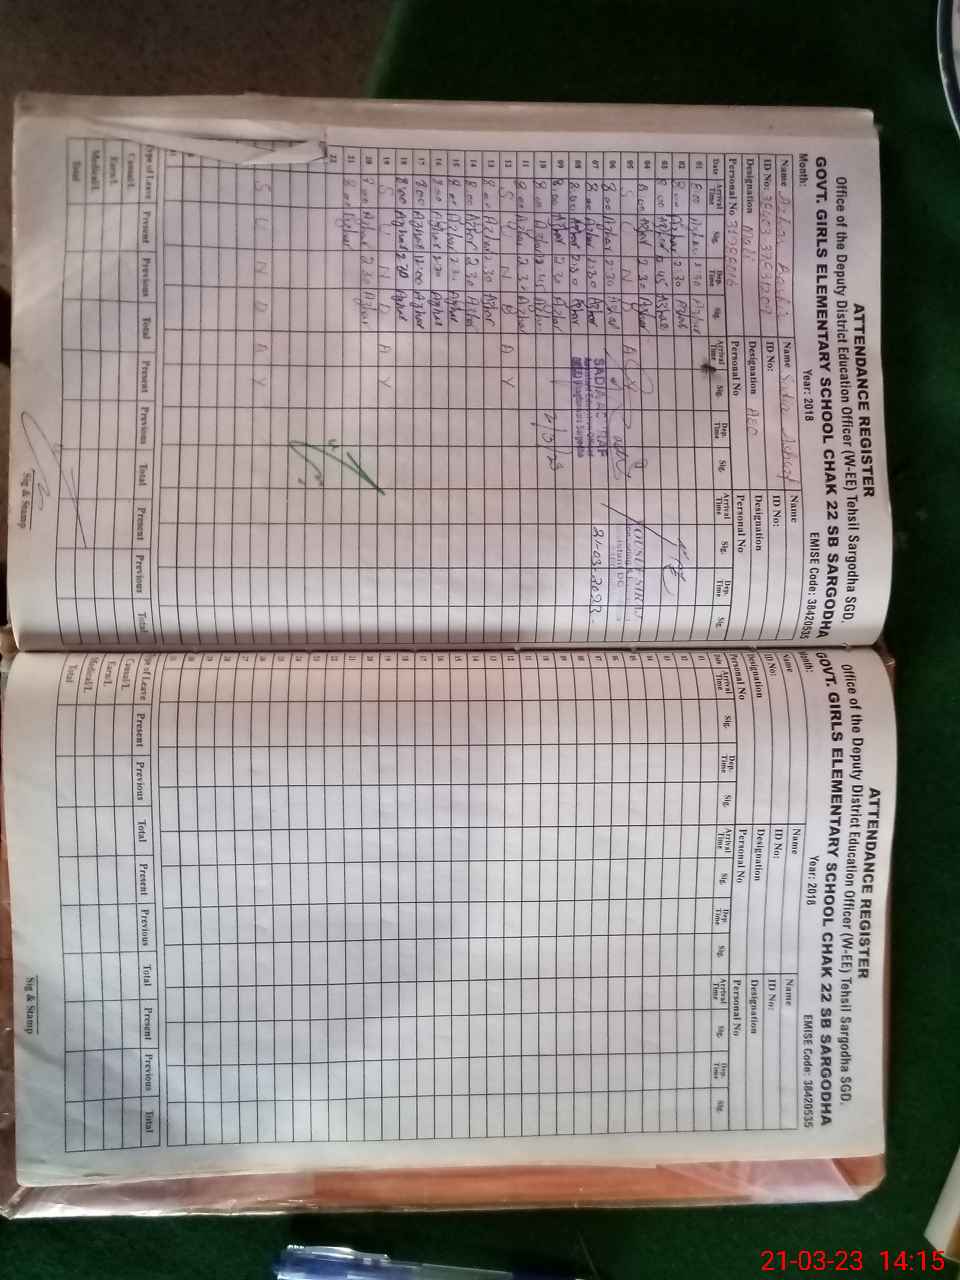 ATTENDANCE REGISTER
Office of the Deputy District Education Officer (W-EE) Tehsil Sargodha SGD.
GOVT. GIRLS ELEMENTARY SCHOOL CHAK 22 SB SARGODHA
Month: Year: 2018 EMISE Code: 38420535
Name Azhar Name Sadia Ashraf Name
ID No: ID No: ID No:
Designation Mali Designation AEO Designation
Personal No Personal No Personal No
Date Arrival Time Sig. Dep. Time Sig. Arrival Time Sig. Dep. Time Sig. Arrival Time Sig. Dep. Time Sig.
01 8:00 Azhar 2:30 Azhar
02 8:00 Azhar 2:30 Azhar
03 8:00 Azhar 12:45 Azhar
04 8:00 Azhar 2:30 Azhar
05 S U N D A Y
06 8:00 Azhar 2:30 Azhar
07 8:00 Azhar 2:30 Azhar SADIA ASHRAF 21-03-2023
08 8:00 Azhar 2:30 Azhar
09 8:00 Azhar 2:30 Azhar
10 8:00 Azhar 12:45 Azhar
11 8:00 Azhar 2:30 Azhar
12 S U N D A Y
13 8:00 Azhar 2:30 Azhar
14 8:00 Azhar 2:30 Azhar
15 8:00 Azhar 2:30 Azhar
16 8:00 Azhar 2:30 Azhar
17 8:00 Azhar 12:00 Azhar
18 8:00 Azhar 2:30 Azhar
19 S U N D A Y
20 8:00 Azhar 2:30 Azhar
21 8:00 Azhar
22
S U N D A Y
Type of Leave Present Previous Total Present Previous Total Present Previous Total
Casual L
Earn/L
Medical/L
Total
Sig & Stamp
ATTENDANCE REGISTER
Office of the Deputy District Education Officer (W-EE) Tehsil Sargodha SGD.
GOVT. GIRLS ELEMENTARY SCHOOL CHAK 22 SB SARGODHA
Month: Year: 2018 EMISE Code: 38420535
Name Name Name
ID No: ID No: ID No:
Designation Designation Designation
Personal No Personal No Personal No
Date Arrival Time Sig. Dep. Time Sig. Arrival Time Sig. Dep. Time Sig. Arrival Time Sig. Dep. Time Sig.
01
02
03
04
05
06
07
08
09
10
11
12
13
14
15
16
17
18
19
20
21
22
23
24
25
26
27
28
29
30
31
Type of Leave Present Previous Total Present Previous Total Present Previous Total
Casual/L
Earn/L
Medical/L
Total
Sig & Stamp
21-03-23 14:15